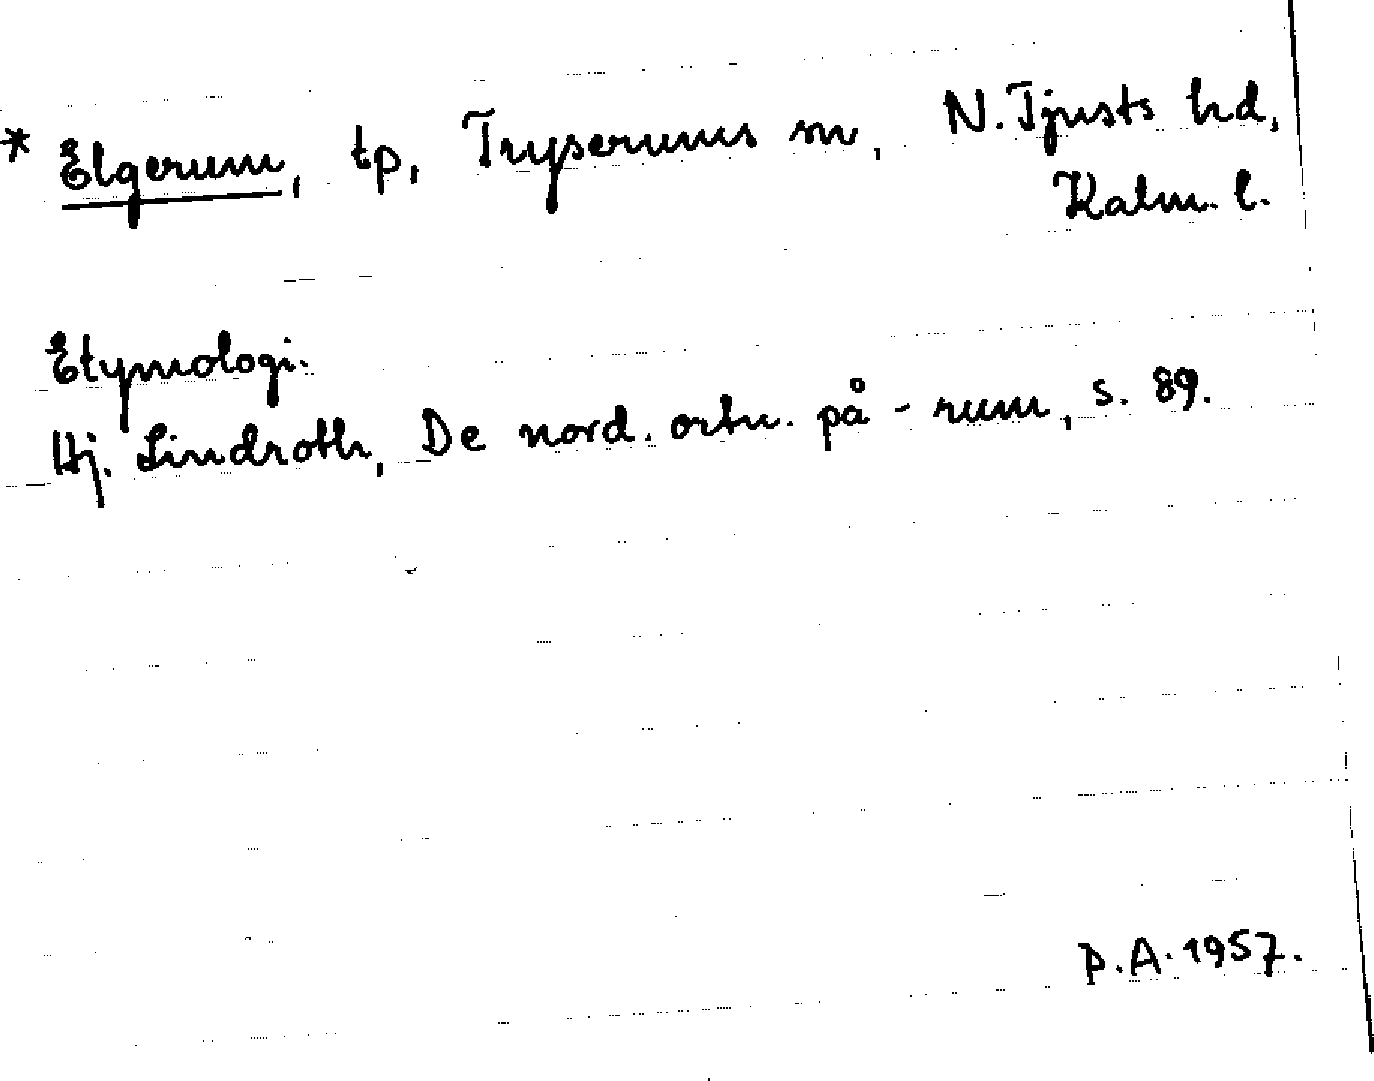 * Elgerum, tp, Tryserums sn, N. Tjusts hd,
Kalm. l.
Etymologi.
Hj. Lindroth, De nord. ortn. på -rum, s. 89.
P.A. 1957.